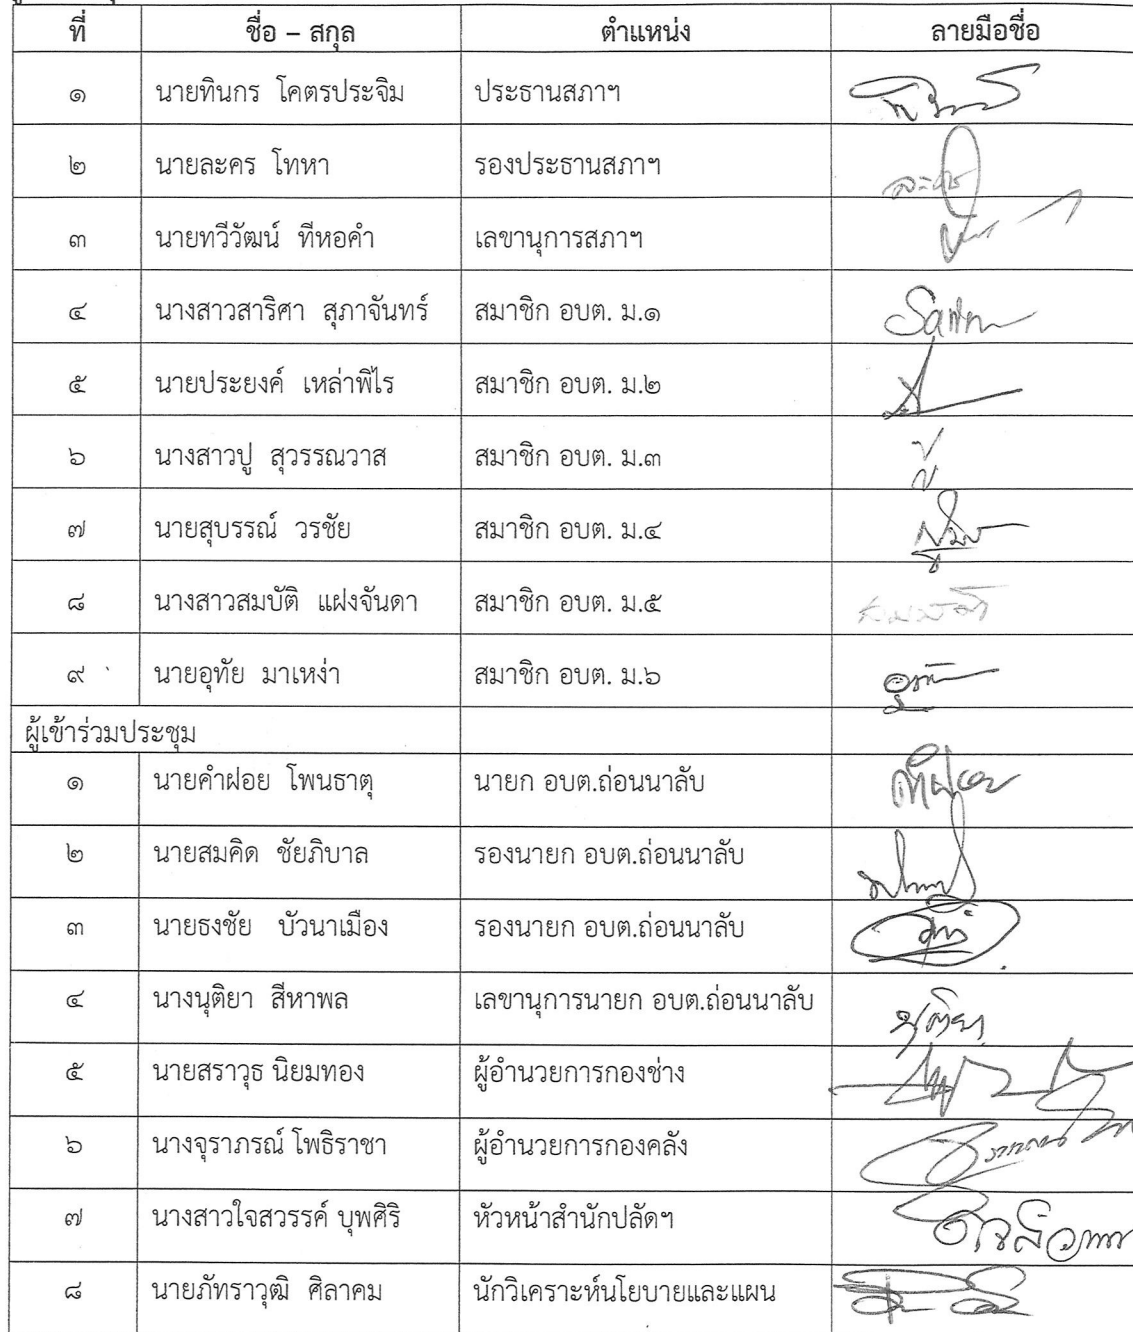 ที่ ชื่อ – สกุล ตำแหน่ง ลายมือชื่อ
๑ นายทินกร โคตรประจิม ประธานสภาฯ
๒ นายละคร โทหา รองประธานสภาฯ
๓ นายทวีวัฒน์ ทีหอคำ เลขานุการสภาฯ
๔ นางสาวสาริศา สุภาจันทร์ สมาชิก อบต. ม.๑
๕ นายประยงค์ เหล่าพิไร สมาชิก อบต. ม.๒
๖ นางสาวปู สุวรรณวาส สมาชิก อบต. ม.๓
๗ นายสุบรรณ์ วรชัย สมาชิก อบต. ม.๔
๘ นางสาวสมบัติ แฝงจันดา สมาชิก อบต. ม.๕ สมบัติ
๙ นายอุทัย มาเหง่า สมาชิก อบต. ม.๖
ผู้เข้าร่วมประชุม
๑ นายคำฝอย โพนธาตุ นายก อบต.ถ่อนนาลับ คำฝอย
๒ นายสมคิด ชัยภิบาล รองนายก อบต.ถ่อนนาลับ
๓ นายธงชัย บัวนาเมือง รองนายก อบต.ถ่อนนาลับ
๔ นางนุติยา สีหาพล เลขานุการนายก อบต.ถ่อนนาลับ นุติยา
๕ นายสราวุธ นิยมทอง ผู้อำนวยการกองช่าง
๖ นางจุราภรณ์ โพธิราชา ผู้อำนวยการกองคลัง
๗ นางสาวใจสวรรค์ บุพศิริ หัวหน้าสำนักปลัดฯ
๘ นายภัทราวุฒิ ศิลาคม นักวิเคราะห์นโยบายและแผน